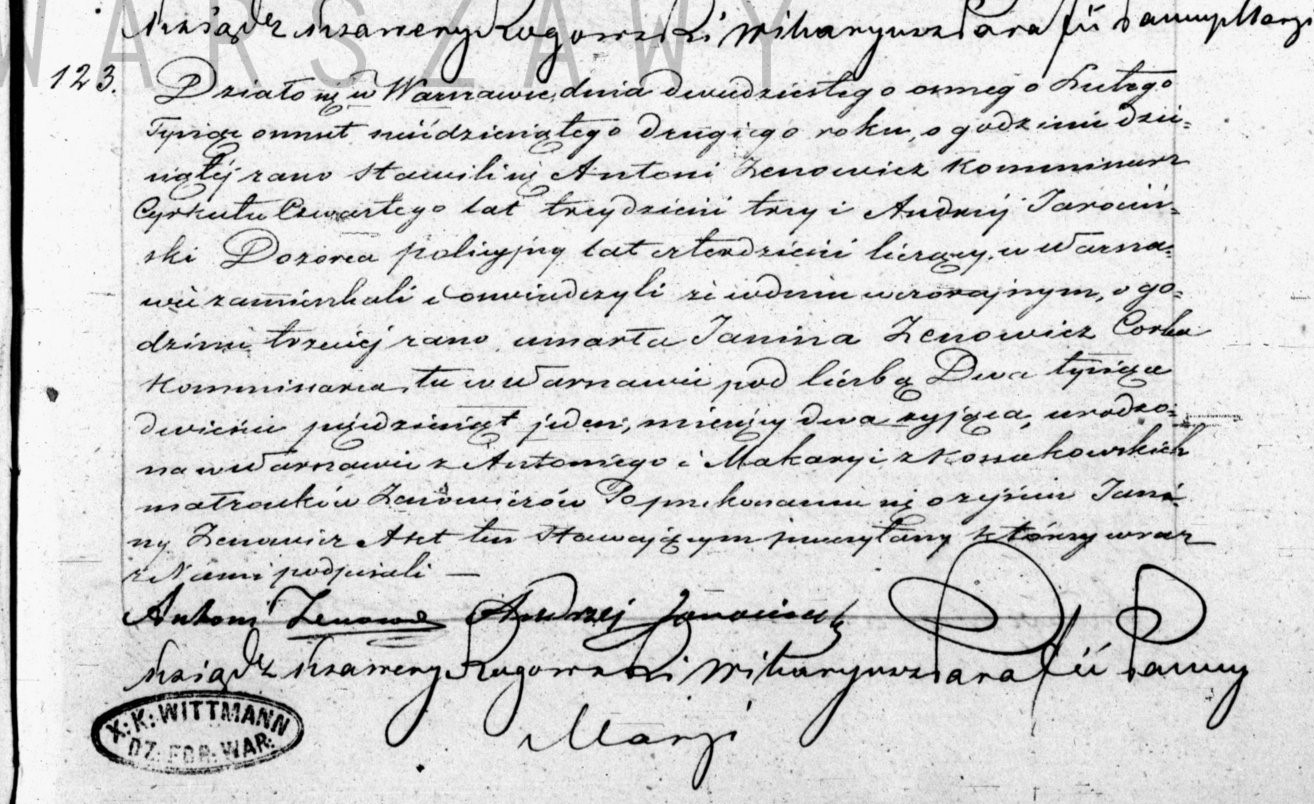 WARSZAWY
Ksiądz Ksawery Rogowski Wikaryusz Parafii Panny Maryi
123.
Działo się w Warszawie, dnia dwudziestego osmego Lutego
Tysiąc osmset sześćdziesiątego drugiego roku, o godzinie dzie=
siątej rano stawili się Antoni Zenowicz Kommissarz
Cyrkułu Czwartego lat trzydzieści trzy i Andrzej Jarociń=
ski Dozorca policyjny lat czterdzieści liczący, w Warsza=
wie zamieszkali i oswiadczyli że w dniu wczorajszym, o go=
dzinie trzeciej rano, umarła Janina Zenowicz Corka
Kommissarza, tu w Warszawie pod liczbą Dwa tysiące
dwieście pięćdziesiąt jeden, miesięcy dwa żyjąca, urodzo=
na w Warszawie z Antoniego i Makaryi z Kossakowskich
małżonków Zenowiczów Po przekonaniu się o zejściu Jani=
ny Zenowicz Akt ten stawającym przeczytany którzy wraz
z Nami podpisali —
Antoni Zenowicz Andrzej Jarocinski
Ksiądz Ksawery Rogowski Wikaryusz Parafii Panny
Maryi
X: K: WITTMANN
DZ: FOR: WAR: